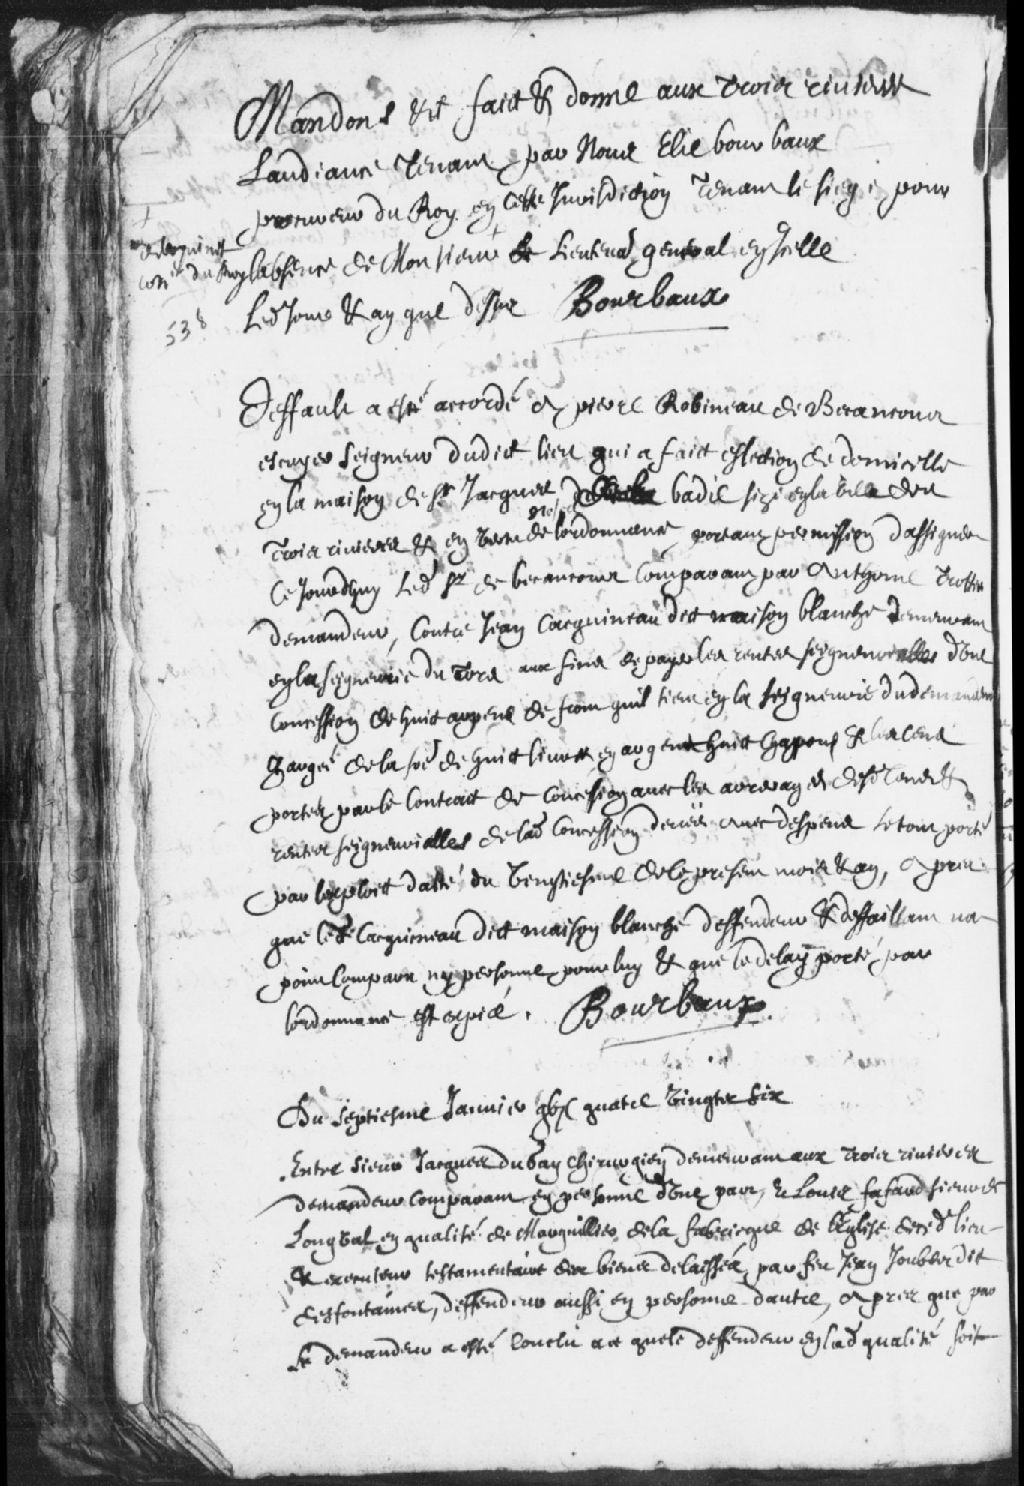 Mandons &c faict & donné aux trois rivieres
Laudiance tenant par Nous Elie bourbaux
procureur du Roy en cette Jurisdiction tenant le siege pour
labsence de Monsieur le Lieutenant general en Jcelle
con.er du Roy
Led Jour & an que dessus Bourbaux
538
Deffault a esté accordé a pierre Robineau de Becancour
escuyer seigneur dudict lieu qui a faict eslection de domicille
en la maison de Sr Jacques badie size en la ville des
trois rivieres & en vertu de nostre lordonnance portant permission dassigner
Ce Jourdhuy led Sr de becancour Comparant par Anthoine Trottier
demandeur, Contre Jean Cacquineau dit maison blanche demeurant
en la seigneurie du Tord aux fins de payer les rentes seigneurialles dune
Concession de huict arpens de front quil tient en la seigneurie du demandeur
chargée de la so.e de huict livres en argent huict Chapons & les cens
portez par le Contract de Concession avec les arrerages desd Cens &
rentes seigneurialles de lad Concession deues avec despens le tout porté
par lexploit datté du vingtiesme de le present mois & an, apres
que led Cacquineau dit maison blanche deffendeur & deffaillant na
point Comparu ny personne pour luy & que le delay porté par
lordonnance est expiré. Bourbaux
Du Septiesme Janvier gbjc quatre vingts six
Entre Sieur Jacques dubay Chirurgien demeurant aux trois rivieres
demandeur comparant en personne dune part, & Louis fafard sieur de
Longval en qualité de Marguillier de la fabricque de lEglise de ced lieu
& executeur testamentaire des biens delaissés par feu Jean Joubert dit
desfontaines, deffendeur aussi en personne dautre, apres que par
le demandeur a esté Conclu a ce que le deffendeur en lad qualité soit